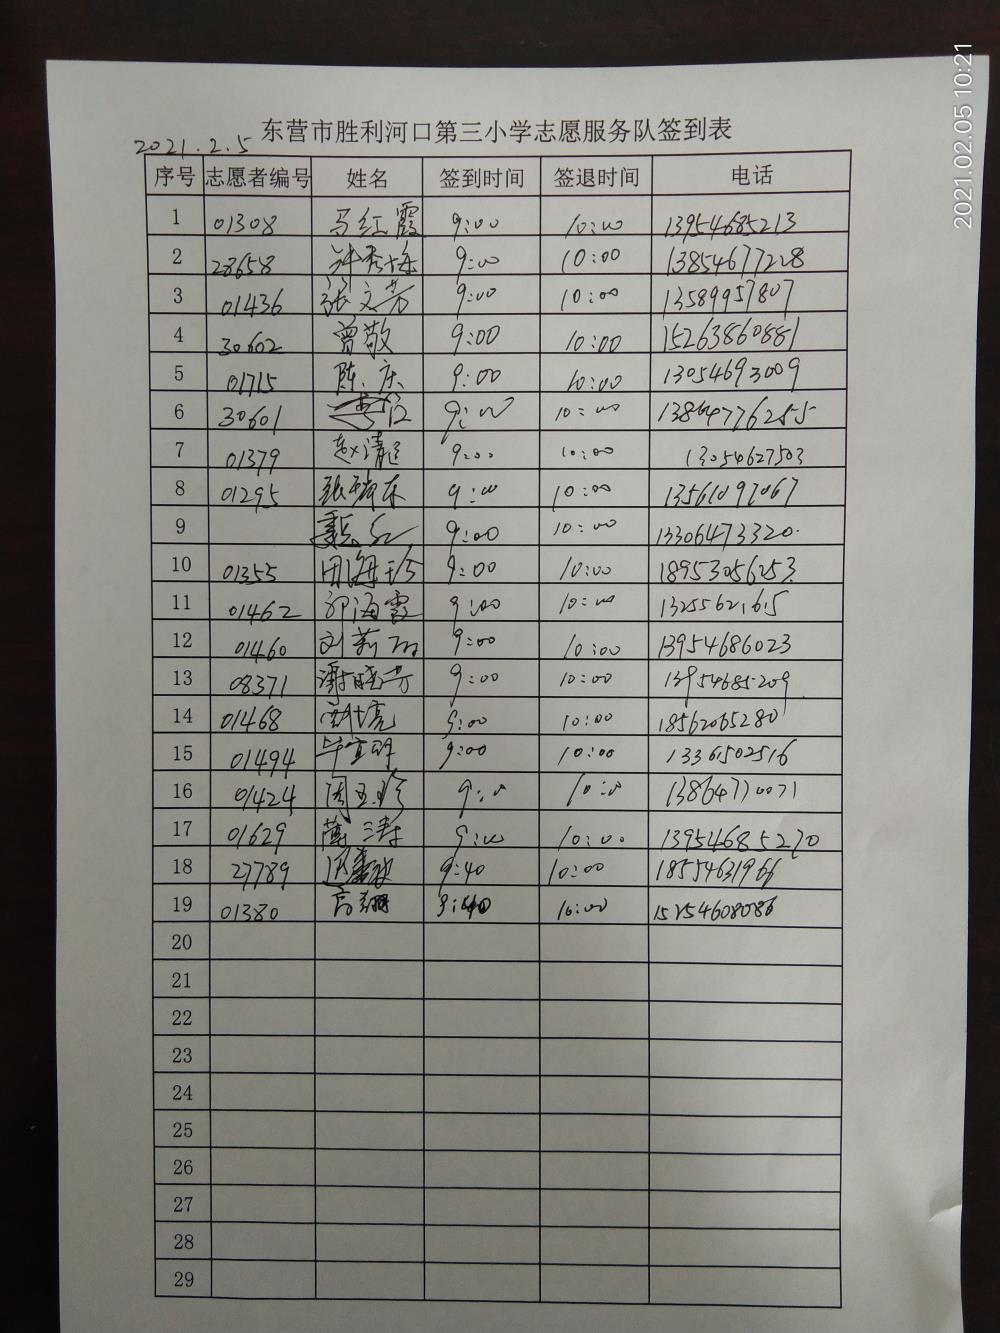 2021.02.05 10:21
东营市胜利河口第三小学志愿服务队签到表
2021.2.5
序号 志愿者编号 姓名 签到时间 签退时间 电话
1 01308 马红霞 9:00 10:00 13954685213
2 28658 9:00 10:00 13854677228
3 01436 张文芳 9:00 10:00 13589957807
4 30602 曾敬 9:00 10:00 15263860881
5 01715 陈庆 9:00 10:00 13054693009
6 30601 9:00 10:00 13864776255
7 01379 9:00 10:00 13054627503
8 01295 9:00 10:00 13561097067
9 9:00 10:00 13306473320
10 01355 周海珍 9:00 10:00 18953056253
11 01462 邓海霞 9:00 10:00 13255621615
12 01460 刘莉 9:00 10:00 13954686023
13 08371 谢晓芳 9:00 10:00 13954685209
14 01468 9:00 10:00 18562065280
15 01494 9:00 10:00 13361502516
16 01424 周玉珍 9:00 10:00 13864770071
17 01629 9:00 10:00 13954685270
18 27789 9:40 10:00 18554631966
19 01380 高翔 9:40 10:00 15254608086
20
21
22
23
24
25
26
27
28
29